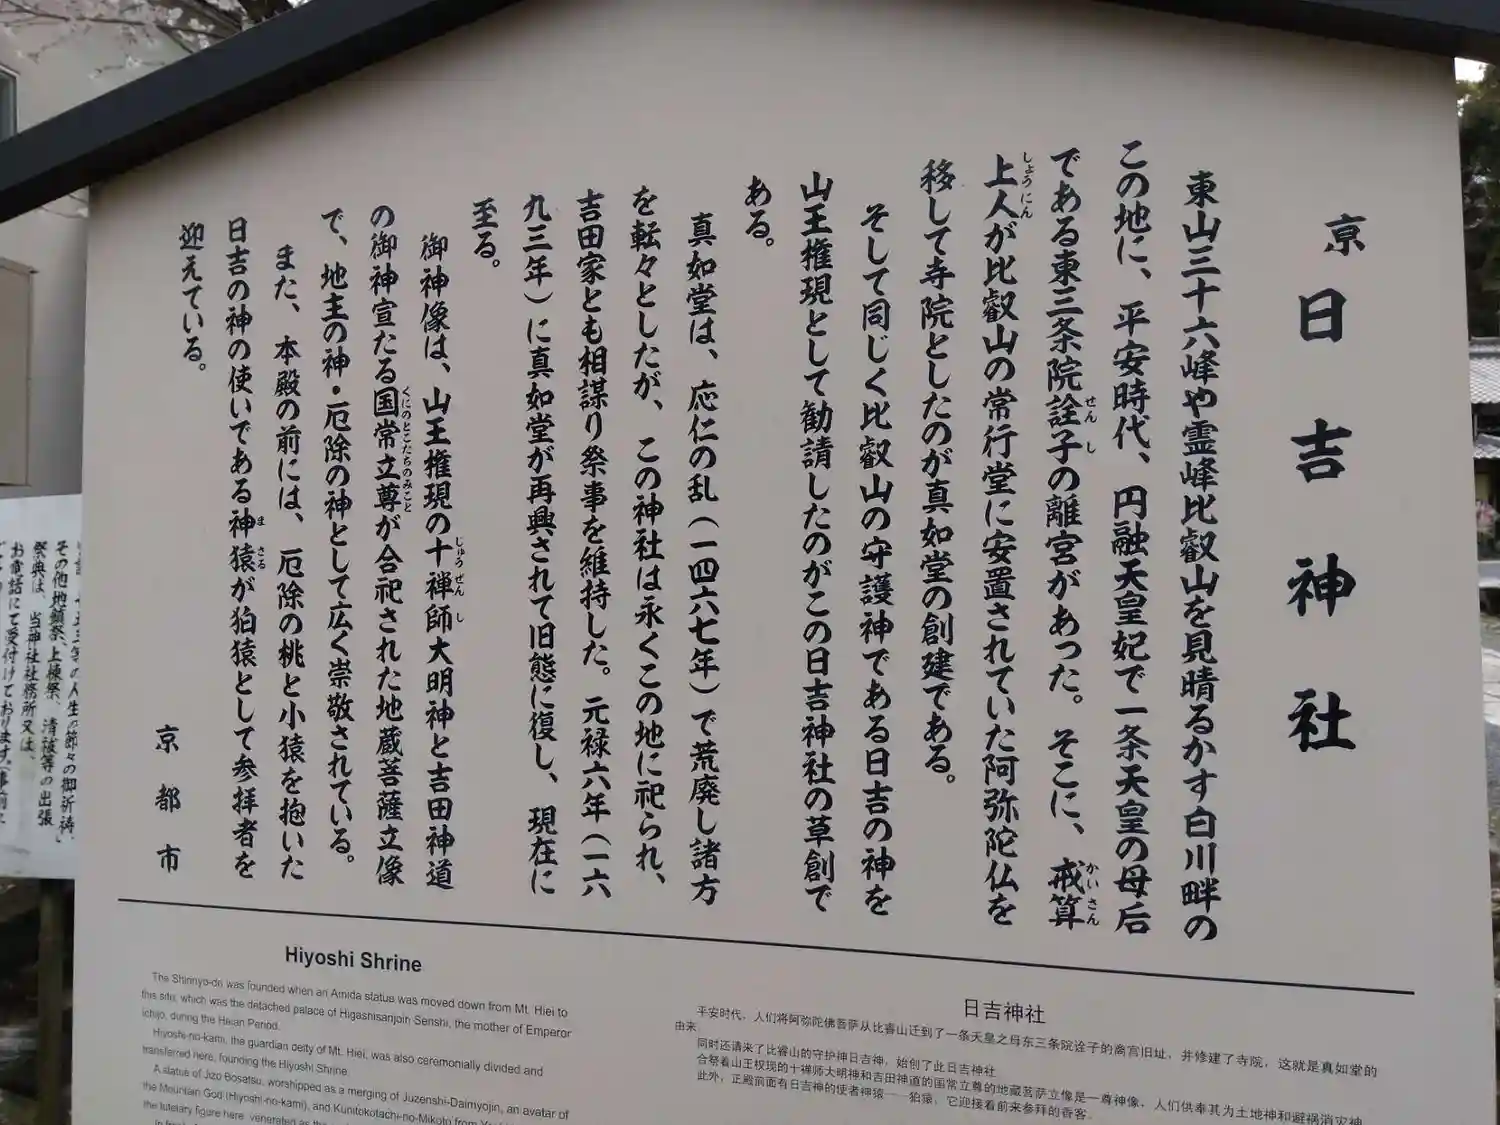 京 日吉神社
東山三十六峰や霊峰比叡山を見晴るかす白川畔の
この地に、平安時代、円融天皇妃で一条天皇の母后
である東三条院詮子の離宮があった。そこに、戒算
せんし
かいさん
上人が比叡山の常行堂に安置されていた阿弥陀仏を
しょうにん
移して寺院としたのが真如堂の創建である。
そして同じく比叡山の守護神である日吉の神を
山王権現として勧請したのがこの日吉神社の草創で
ある。
真如堂は、応仁の乱（一四六七年）で荒廃し諸方
を転々としたが、この神社は永くこの地に祀られ、
吉田家とも相謀り祭事を維持した。元禄六年（一六
九三年）に真如堂が再興されて旧態に復し、現在に
至る。
御神像は、山王権現の十禅師大明神と吉田神道
じゅうぜんし
の御神宣たる国常立尊が合祀された地蔵菩薩立像
くにのとこたちのみこと
で、地主の神・厄除の神として広く崇敬されている。
また、本殿の前には、厄除の桃と小猿を抱いた
日吉の神の使いである神猿が狛猿として参拝者を
まさる
迎えている。
京都市
Hiyoshi Shrine
The Shinnyo-do was founded when an Amida statue was moved down from Mt. Hiei to
this site, which was the detached palace of Higashisanjoin Senshi, the mother of Emperor
Ichijo, during the Heian Period.
Hiyoshi-no-kami, the guardian deity of Mt. Hiei, was also ceremonially divided and
transferred here, founding the Hiyoshi Shrine.
A statue of Jizo Bosatsu, worshipped as a merging of Juzenshi-Daimyojin, an avatar of
the Mountain God (Hiyoshi-no-kami), and Kunitokotachi-no-Mikoto from
the tutelary figure here, venerated as the
日吉神社
平安时代，人们将阿弥陀佛菩萨从比睿山迁到了一条天皇之母东三条院诠子的离宫旧址，并修建了寺院，这就是真如堂的
由来
同时还请来了比睿山的守护神日吉神，始创了此日吉神社
合祭着山王权现的十禅师大明神和吉田神道的国常立尊的地藏菩萨立像是一尊神像，人们供奉其为土地神和避祸消灾神
此外，正殿前面有日吉神的使者神猿——狛猿，它迎接着前来参拜的香客
の人生の節々の御祈祷、
その他地鎮祭、上棟祭、清祓等の出張
祭典は、当神社社務所又は、
お電話にて受付けております